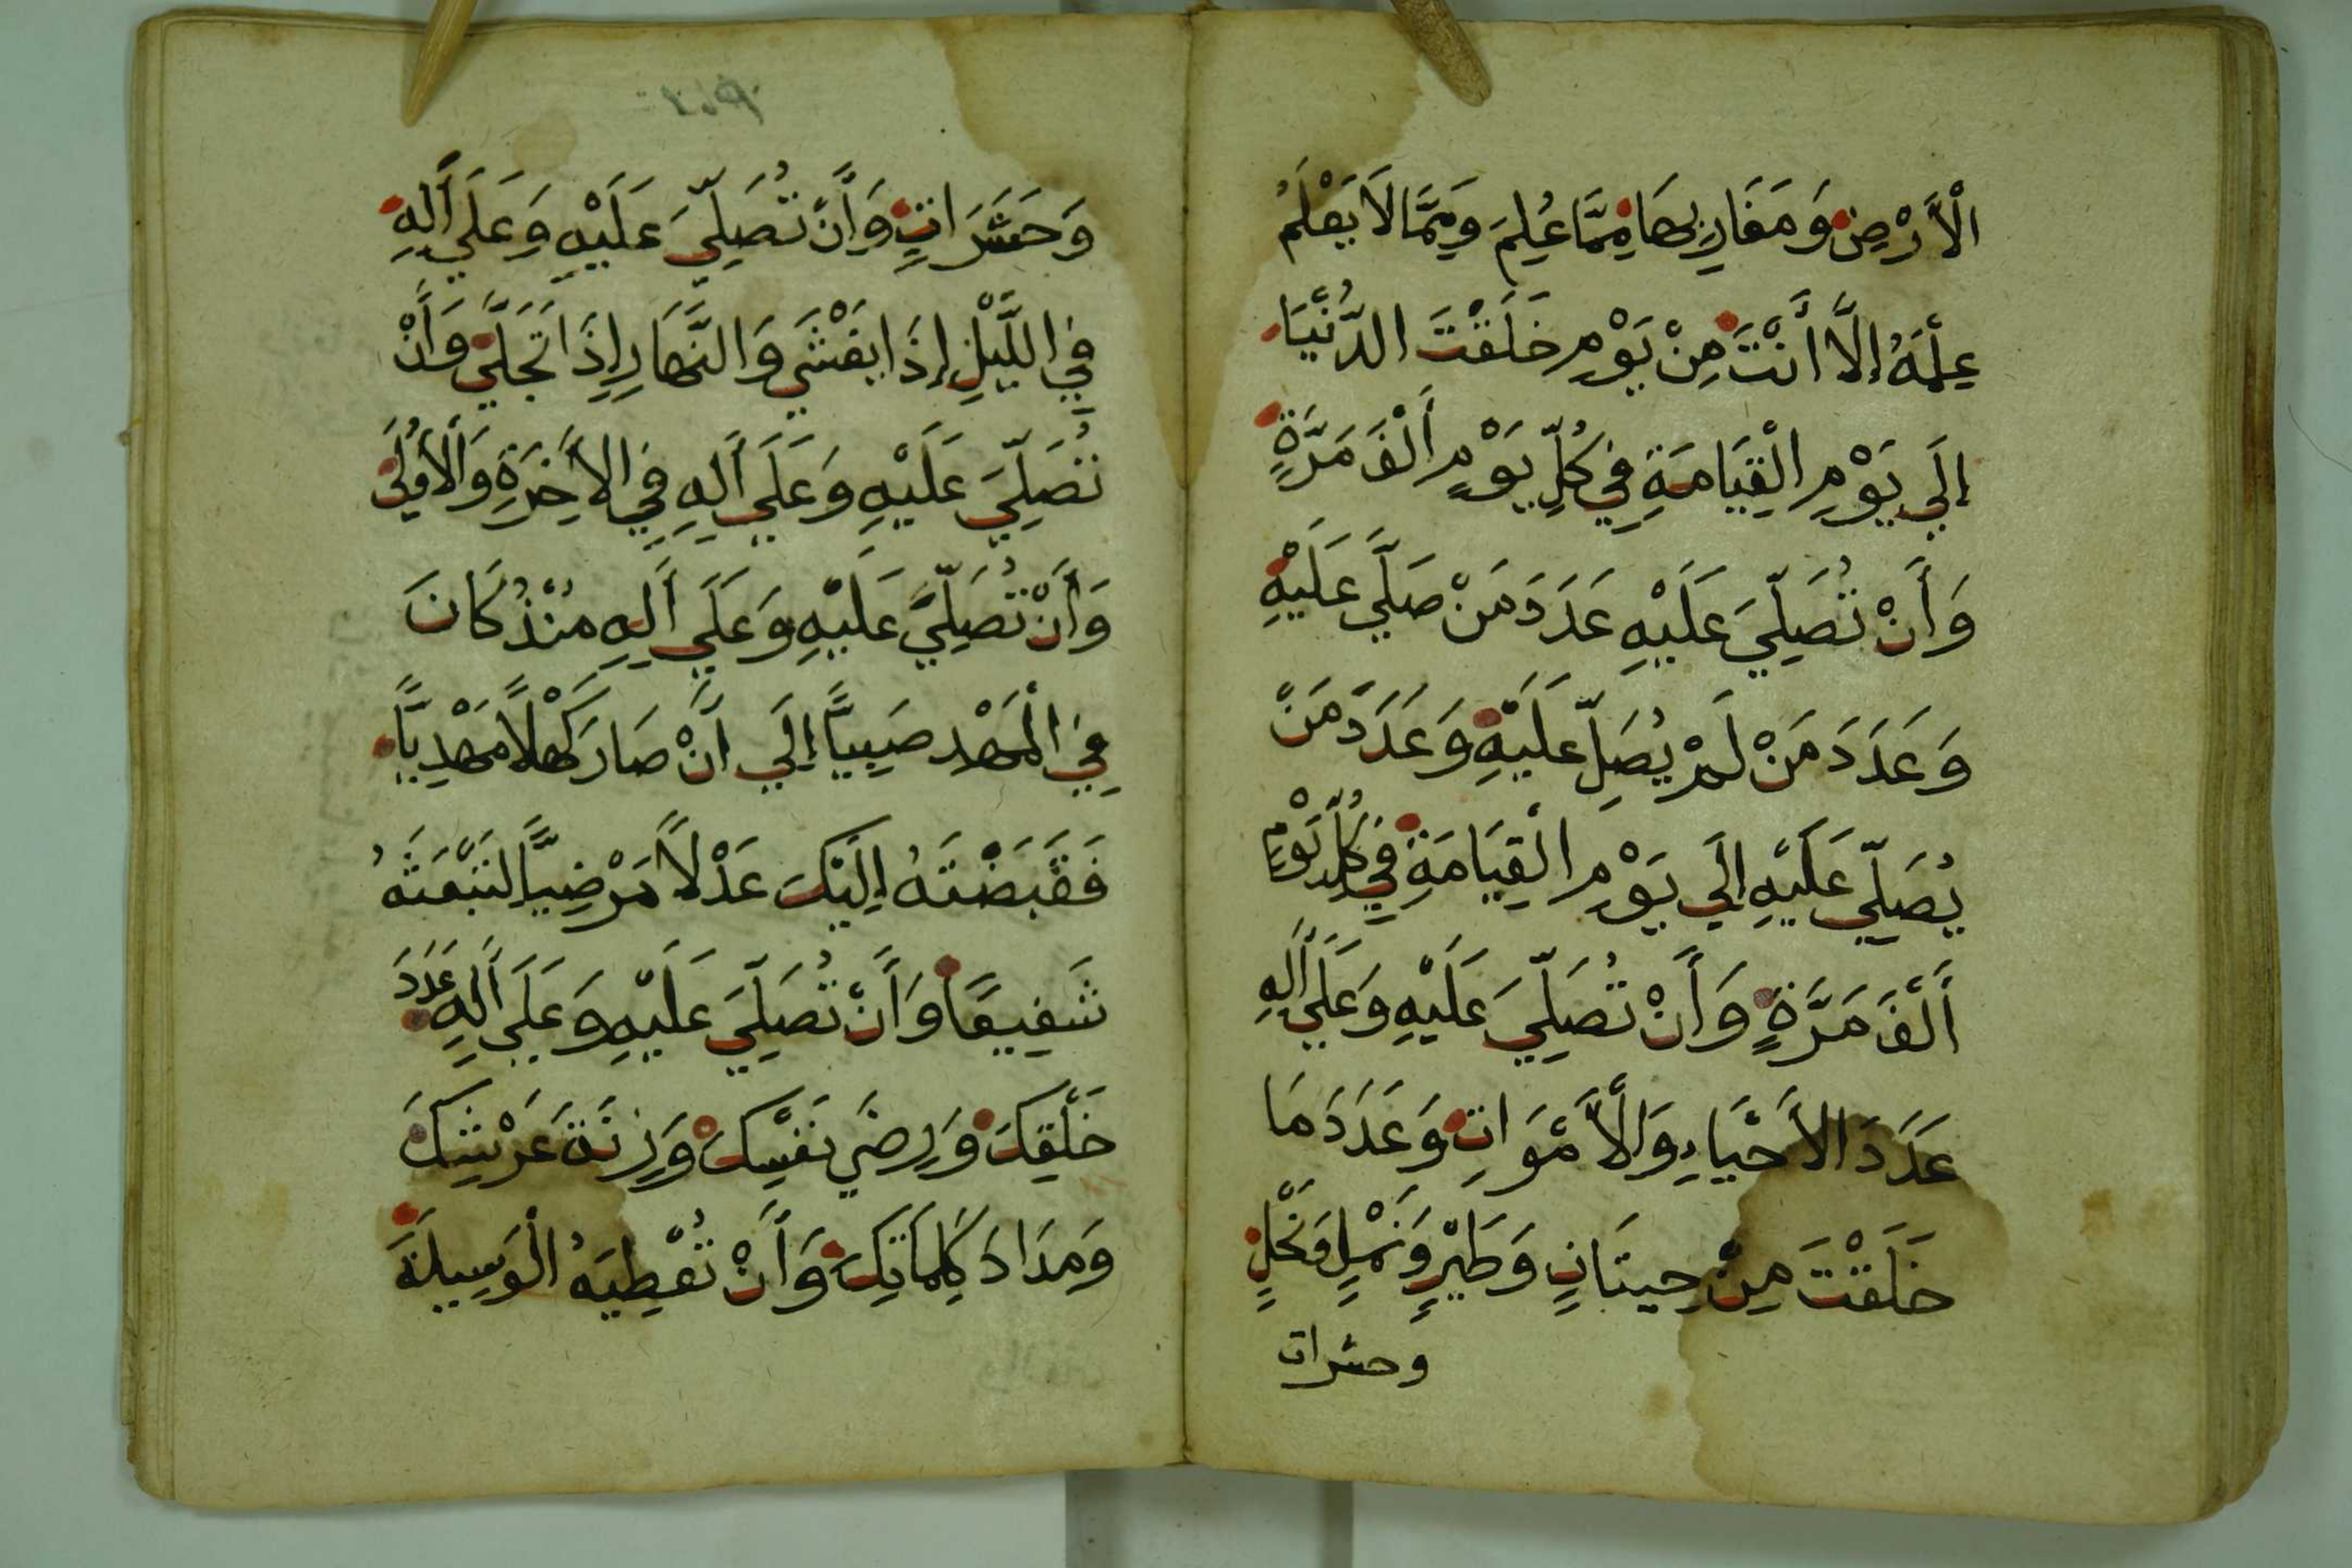 الْأَرْضِ وَمَغَارِبِهَا مِمَّا عُلِمَ وَمِمَّا لَا يَعْلَمُ
عِلْمَهُ إِلَّا أَنْتَ مِنْ يَوْمِ خَلَقْتَ الدُّنْيَا
إِلَي يَوْمِ الْقِيَامَةِ فِي كُلِّ يَوْمٍ أَلْفَ مَرَّةٍ
وَأَنْ تُصَلِّيَ عَلَيْهِ عَدَدَ مَنْ صَلَّي عَلَيْهِ
وَعَدَدَ مَنْ لَمْ يُصَلِّ عَلَيْهِ وَعَدَدَ مَنْ
يُصَلِّي عَلَيْهِ إِلَي يَوْمِ الْقِيَامَةِ فِي كُلِّ يَوْمٍ
أَلْفَ مَرَّةٍ وَأَنْ تُصَلِّيَ عَلَيْهِ وَعَلَي أَلِهِ
عَدَدَ الْأَحْيَاءِ وَالْأَمْوَاتِ وَعَدَدَ مَا
خَلَقْتَ مِنْ حِيتَانٍ وَطَيْرٍ وَنَمْلٍ وَنَحْلٍ
وحشرات
وَحَشَرَاتٍ وَأَنْ تُصَلِّيَ عَلَيْهِ وَعَلَي أَلِهِ
فِي اللَّيْلِ إِذَا يَغْشَي وَالنَّهَارِ إِذَا تَجَلَّي وَأَنْ
تُصَلِّيَ عَلَيْهِ وَعَلَي أَلِهِ فِي الْأَخِرَةِ وَالْأُولَي
وَأَنْ تُصَلِّيَ عَلَيْهِ وَعَلَي أَلِهِ مُنْذُ كَانَ
فِي الْمَهْدِ صَبِيًّا إِلَي أَنْ صَارَ كَهْلًا مَهْدِيًّا
فَقَبَضْتَهُ إِلَيْكَ عَدْلًا مَرْضِيًّا لِتَبْعَثَهُ
شَفِيعًا وَأَنْ تُصَلِّيَ عَلَيْهِ وَعَلَي أَلِهِ عَدَدَ
خَلْقِكَ وَرِضَي نَفْسِكَ وَزِنَةَ عَرْشِكَ
وَمِدَادَ كَلِمَاتِكَ وَأَنْ تُعْطِيَهُ الْوَسِيلَةَ